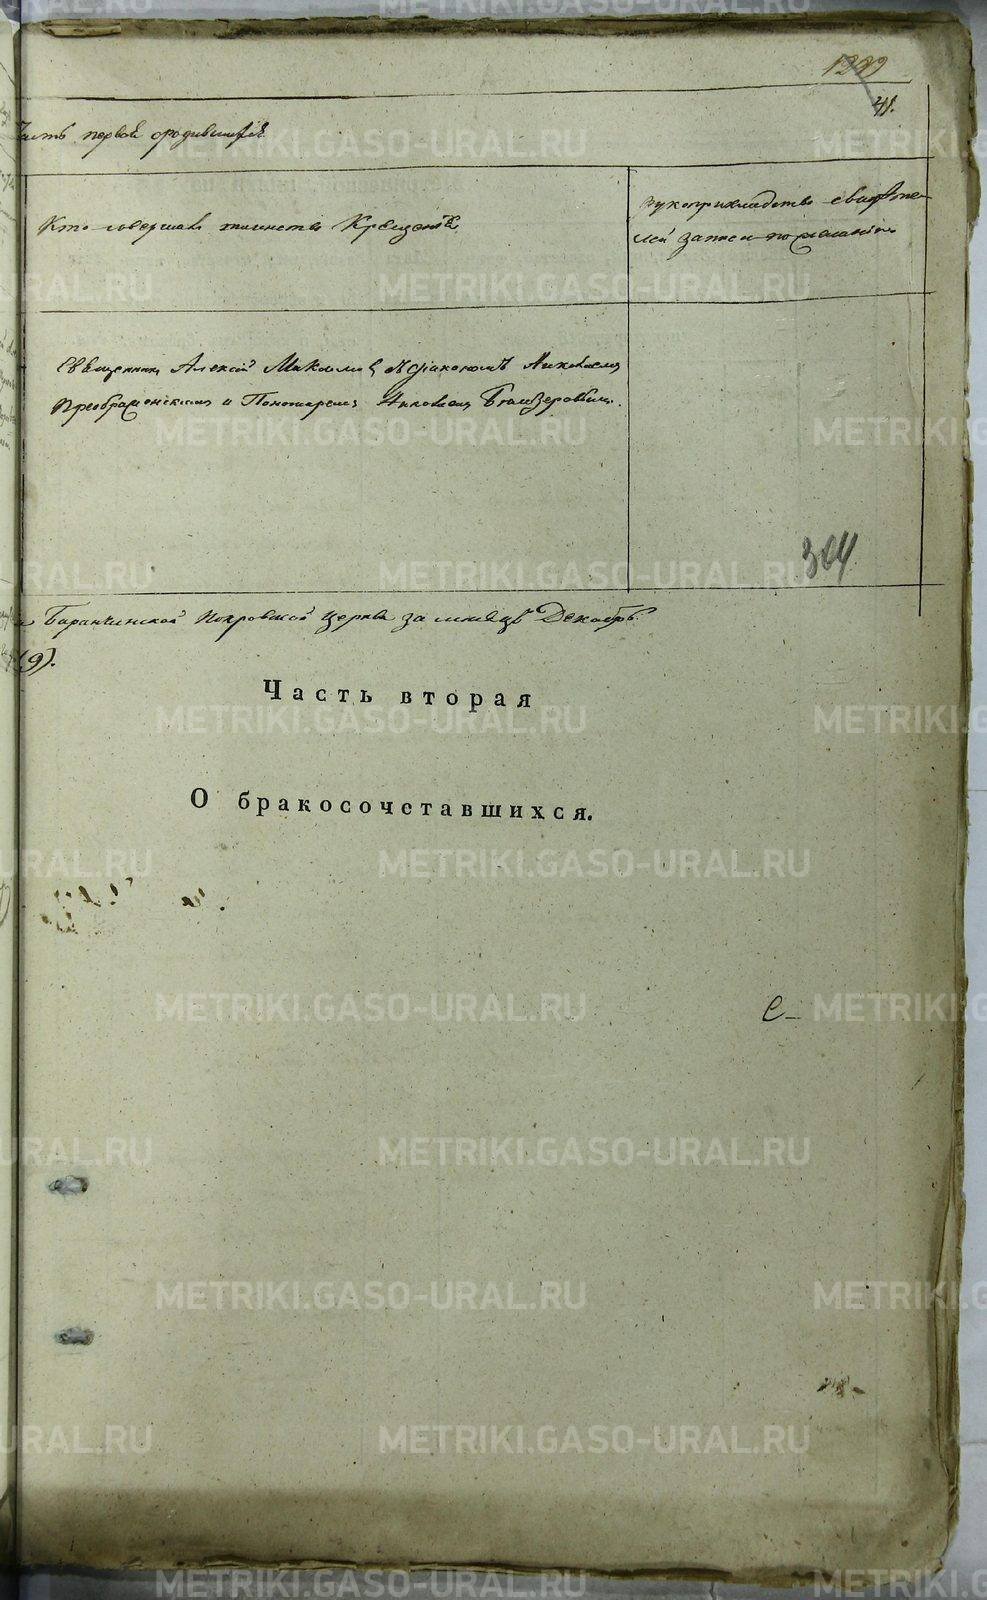 41.
Часть первая о родившихся
Кто совершал таинство Крещенія
рукоприкладство свидѣте-
лей записи по желанію
Священник Алексей съ діакономъ Николаем
Преображенским и Пономарем Николаем
304
Баранчинской Покровской церкви за месяцъ Декабрь
(9).
Часть вторая
О бракосочетавшихся.
METRIKI.GASO-URAL.RU